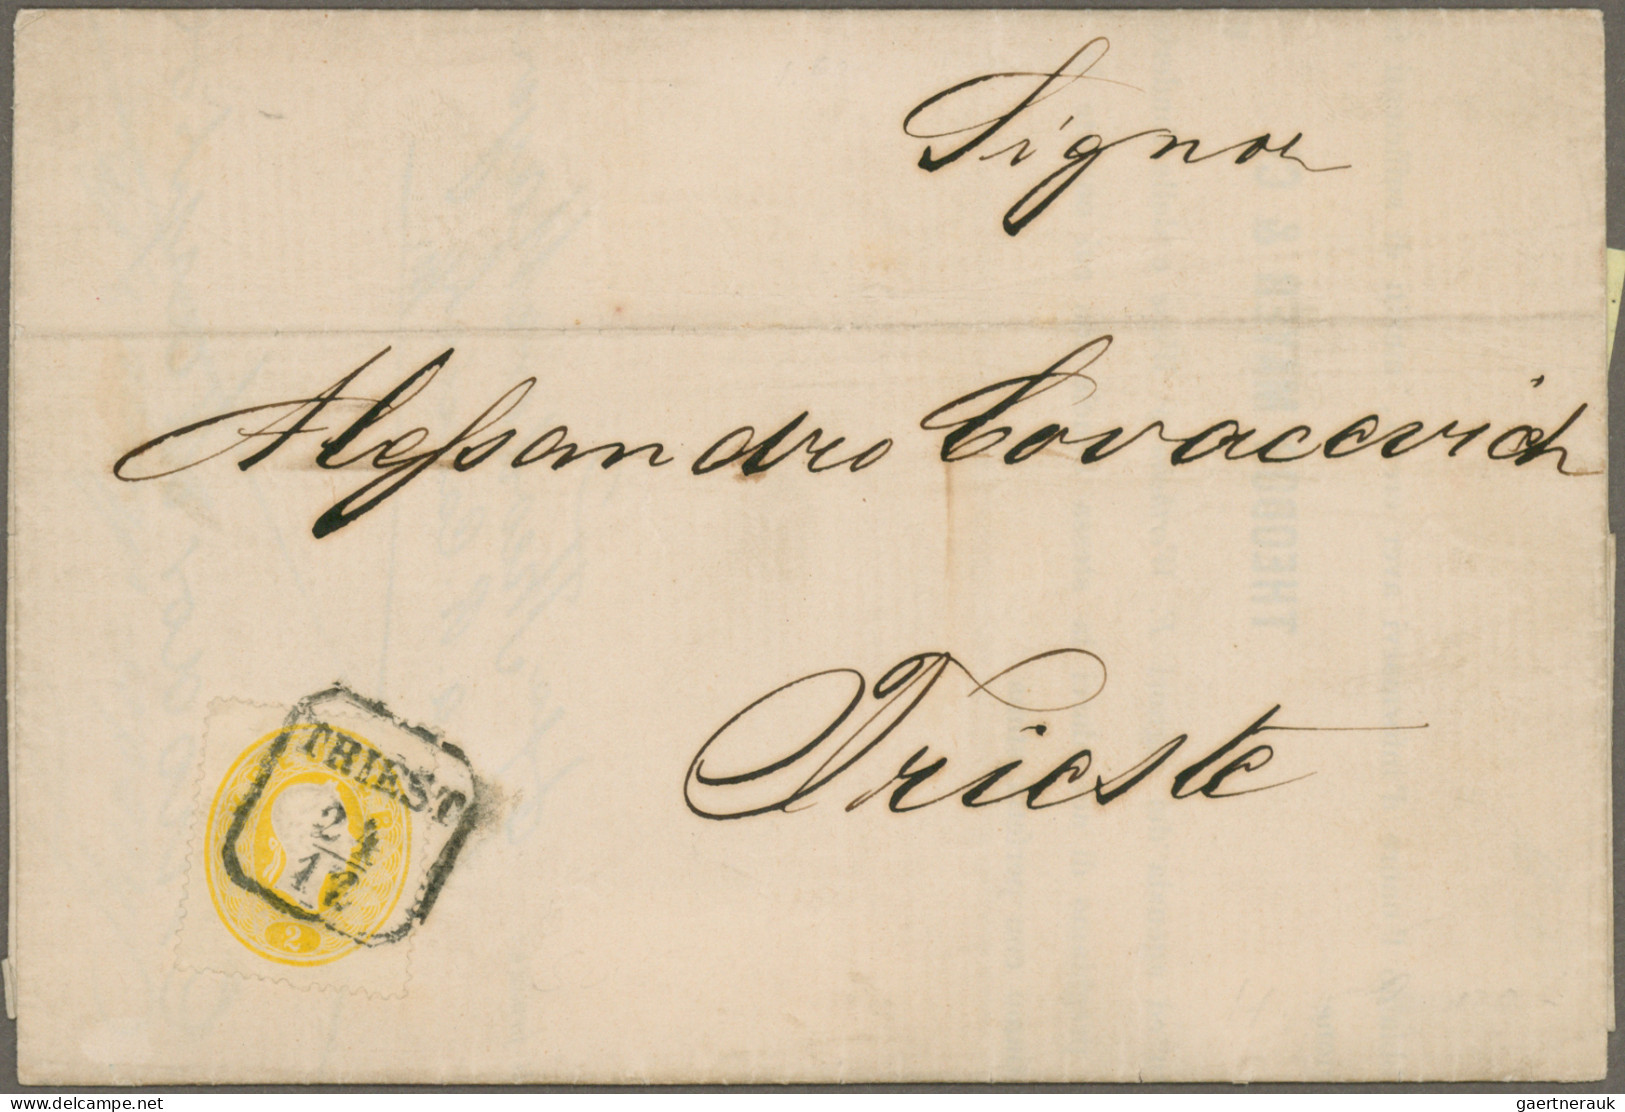 Signor
Alessandro Covacevich
Trieste
TRIEST
24
12
2
delcampe.net
gaertnerauk